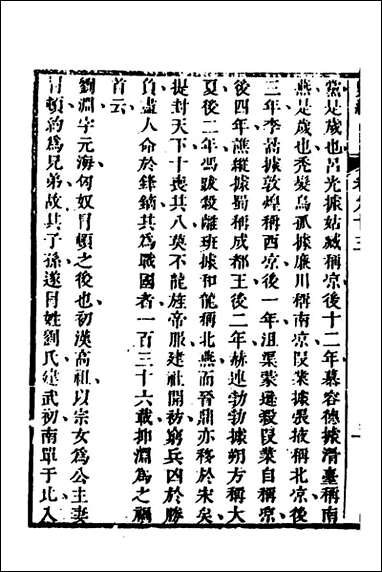 黨是歲也呂光據姑臧稱涼後十二年慕容德據滑臺稱南
燕是歲也禿髮烏孤據廉川稱南涼叚業據張掖稱北涼後
三年李暠據敦煌稱西涼後一年沮渠蒙遜殺叚業自稱涼
後四年譙縱據蜀稱成都王後二年赫連勃勃據朔方稱大
夏後二年馮跋殺離班據和龍稱北燕而晉鼎亦移於宋矣
提封天下十喪其八莫不龍旌帝服建社開祊窮兵凶於勝
負盡人命於鋒鏑其爲戰國者一百三十六載抑淵爲之禍
首云
劉淵字元海匈奴冒頓之後也初漢高祖以宗女爲公主妻
冒頓約爲兄弟故其子孫遂冒姓劉氏建武初南單于比入